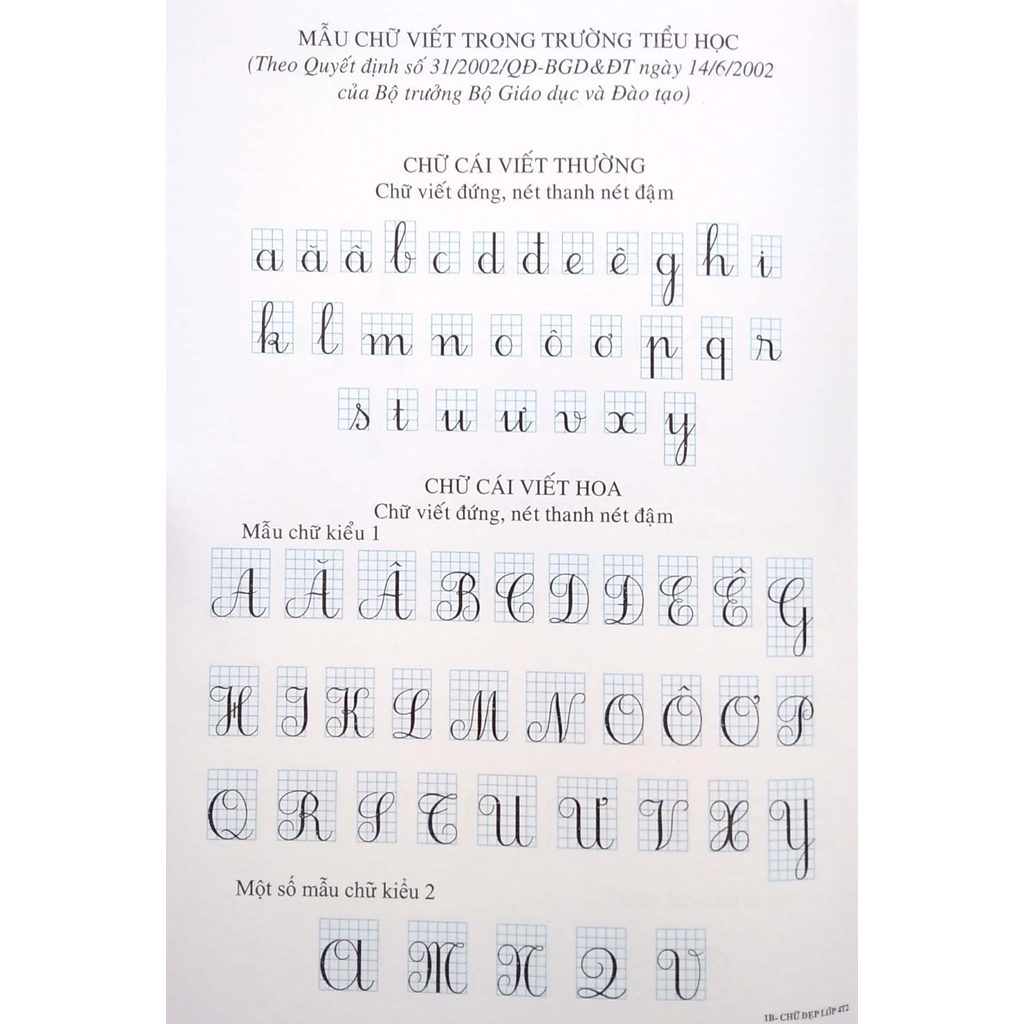 MẪU CHỮ VIẾT TRONG TRƯỜNG TIỂU HỌC
(Theo Quyết định số 31/2002/QĐ-BGD&ĐT ngày 14/6/2002
của Bộ trưởng Bộ Giáo dục và Đào tạo)
CHỮ CÁI VIẾT THƯỜNG
Chữ viết đứng, nét thanh nét đậm
a ă â b c d đ e ê g h i
k l m n o ô ơ p q r
s t u ư v x y
CHỮ CÁI VIẾT HOA
Chữ viết đứng, nét thanh nét đậm
Mẫu chữ kiểu 1
A Ă Â B C D Đ E Ê G
H I K L M N O Ô Ơ P
Q R S T U Ư V X Y
Một số mẫu chữ kiểu 2
A M N Q V
1B- CHỮ ĐẸP LỚP 4T2